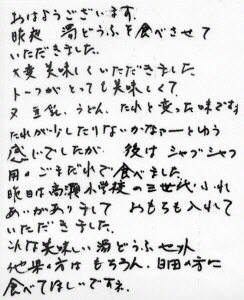 おはようございます。
昨夜 湯どうふを食べさせて
いただきました。
大変美味しくいただきました
トーフがとっても美味しくて
又豆乳、うどん、たれと変った味ですね
たれが少したりないかなァーとゆう
感じでしたが 後はシャブシャブ
用のごまだれで食べました。
昨日は高瀬小学校の三世代ふれ
あいがありまして おもちも入れて
いただきました。
こんな美味しい湯どうふセット
他県の方はもちろん、日田の方に
食べてほしいですネ。